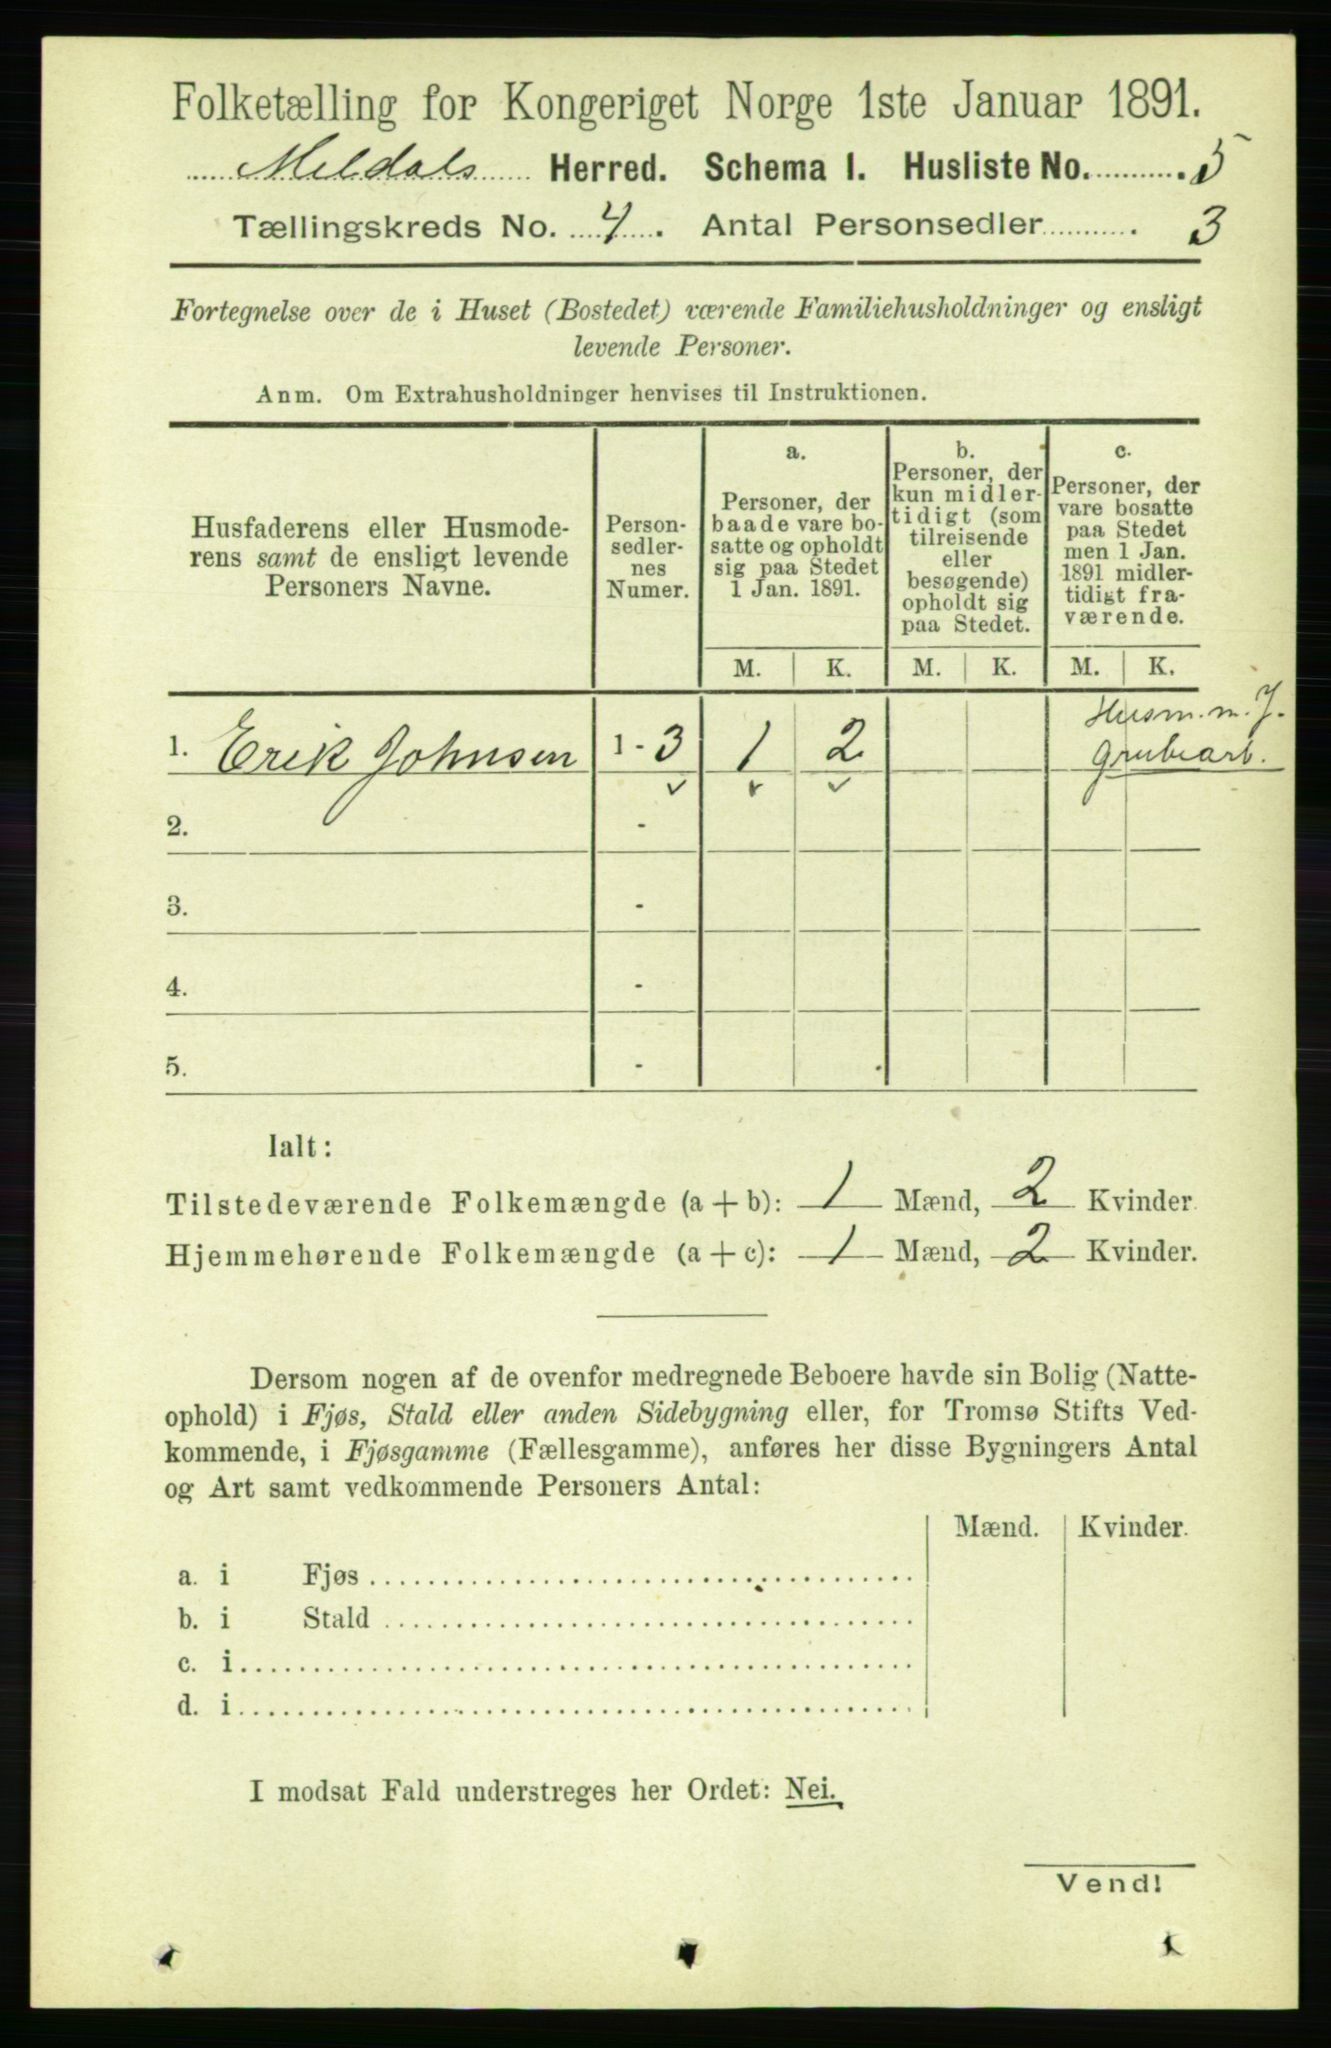 Folketælling for Kongeriget Norge 1ste Januar 1891.
Meldals Herred. Schema 1. Husliste No. 5
Tællingskreds No. 4. Antal Personsedler 3
Fortegnelse over de i Huset (Bostedet) værende Familiehusholdninger og ensligt
levende Personer.
Anm. Om Extrahusholdninger henvises til Instruktionen.
Husfaderens eller Husmode-
rens samt de ensligt levende
Personers Navne.
Person-
sedler-
nes
Numer.
a.
Personer, der
baade vare bo-
satte og opholdt
sig paa Stedet
1 Jan. 1891.
b.
Personer, der
kun midler-
tidigt (som
tilreisende
eller
besøgende)
opholdt sig
paa Stedet.
c.
Personer, der
vare bosatte
paa Stedet
men 1 Jan.
1891 midler-
tidigt fra-
værende.
M. K. M. K. M. K.
Husm. m. J.
1. Erik Johnsen 1 - 3 1 2 Grubearb.
2. -
3. -
4. -
5. -
Ialt:
Tilstedeværende Folkemængde (a + b): 1 Mænd, 2 Kvinder.
Hjemmehørende Folkemængde (a + c): 1 Mænd, 2 Kvinder.
Dersom nogen af de ovenfor medregnede Beboere havde sin Bolig (Natte-
ophold) i Fjøs, Stald eller anden Sidebygning eller, for Tromsø Stifts Ved-
kommende, i Fjøsgamme (Fællesgamme), anføres her disse Bygningers Antal
og Art samt vedkommende Personers Antal:
Mænd. Kvinder.
a. i Fjøs
b. i Stald
c. i
d. i
I modsat Fald understreges her Ordet: Nei.
Vend!